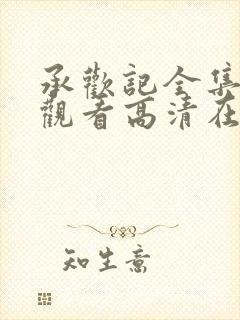 承歡記全集
觀看高清在
知生意